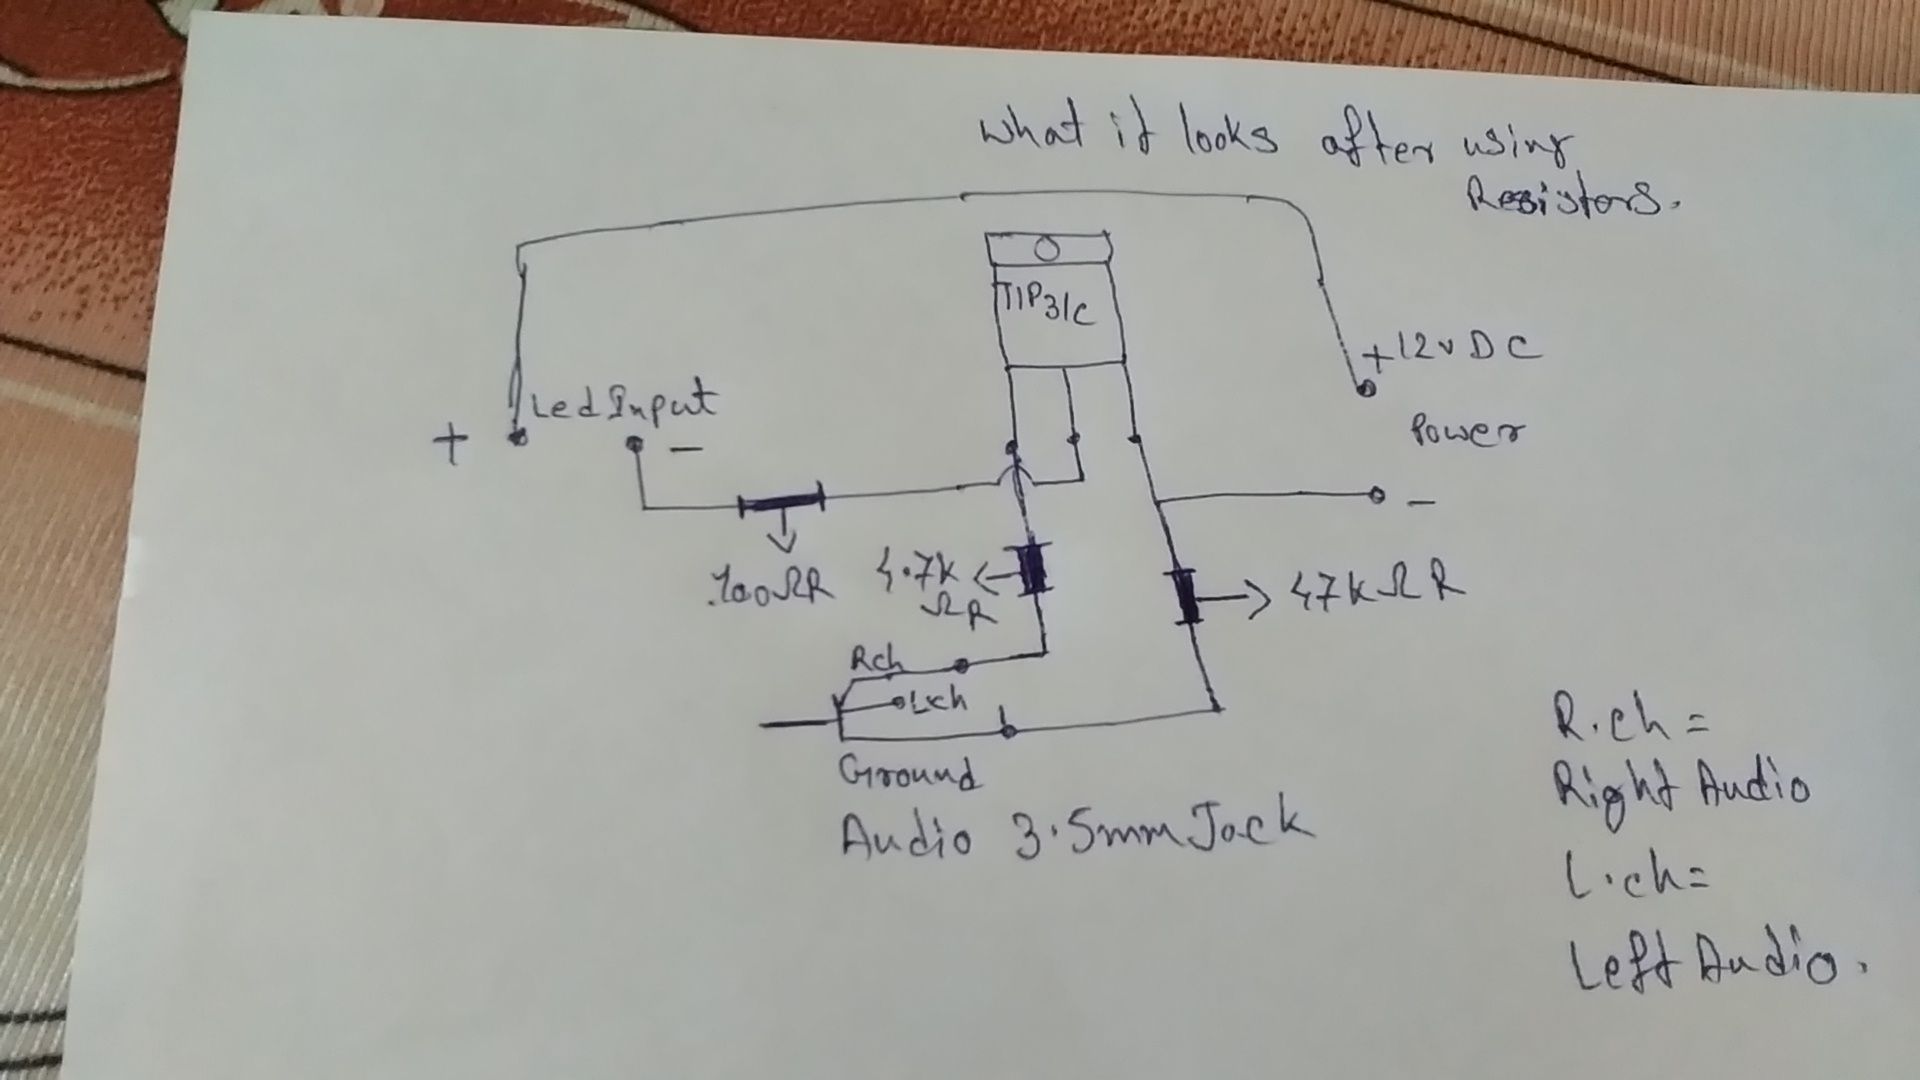 What it looks after using
Resistors.
TIP31C
+12v DC
Power
-
+
Led Input
-
100ΩR
4.7k
ΩR
47kΩR
Rch
Lch
Ground
Audio 3.5mm Jack
R.ch =
Right Audio
L.ch =
Left Audio.